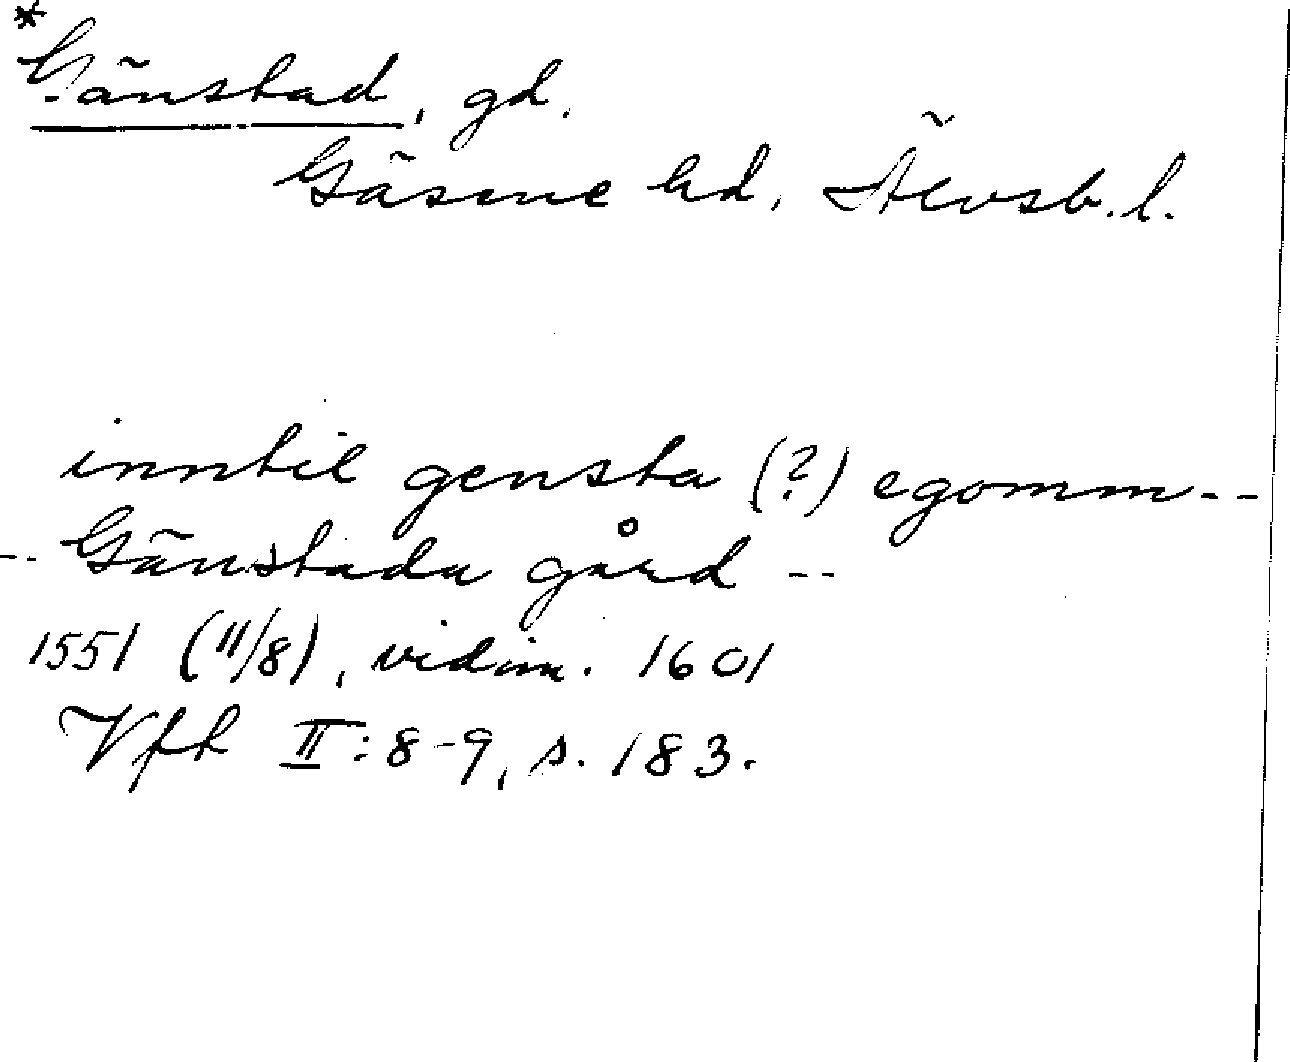 *Gänstad, gd.
Gäsene hd, Älvsb. l.
inntil gensta (?) egomm --
-- Gänstada gård --
1551 (11/8), vidim. 1601
Vfh II: 8-9, s. 183.